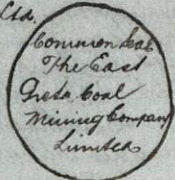 Ltd.
Common Seal
The East
Greta Coal
Mining Company
Limited